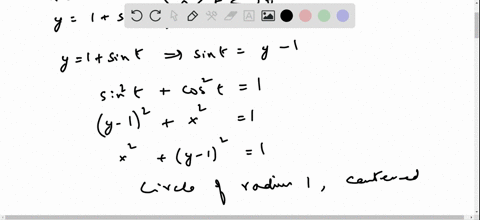 y = 1 + s
y = 1 + sin t ⇒ sin t = y - 1
sin² t + cos² t = 1
(y-1)² + x² = 1
x² + (y-1)² = 1
Circle of radius 1, centered